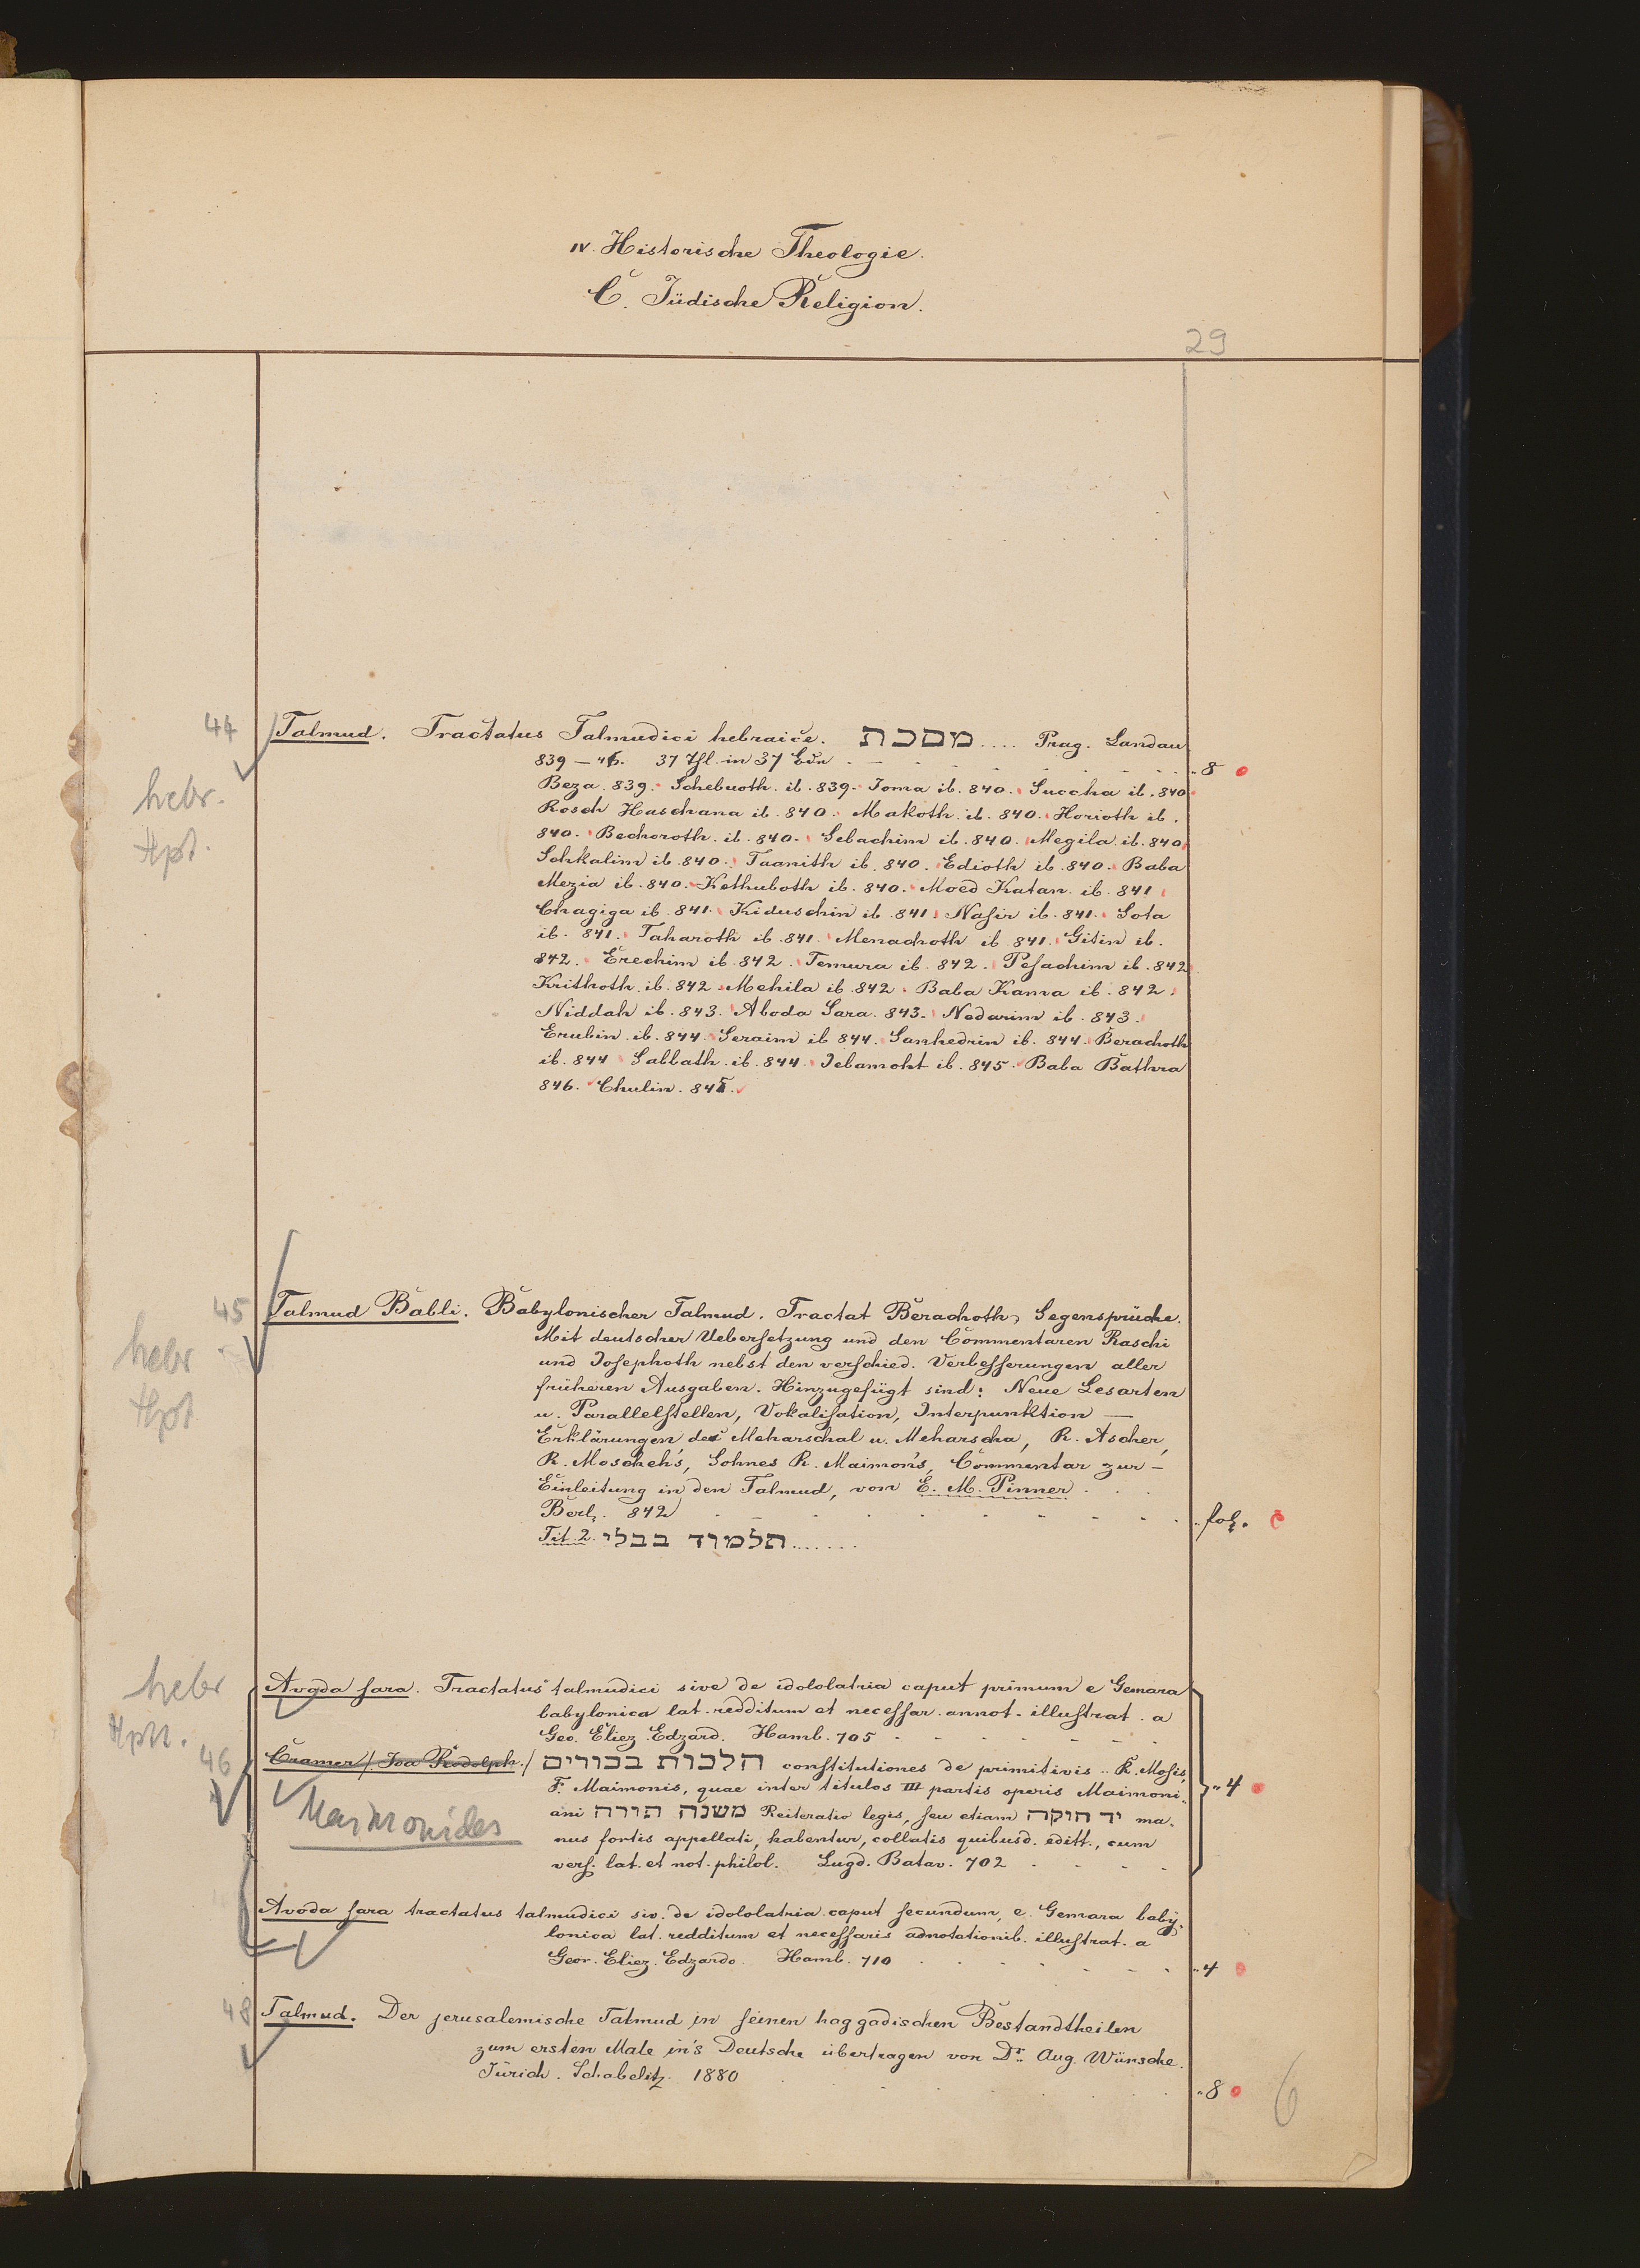 IV. Historische Theologie.
C. Jüdische Religion.
29
44 Talmud. Tractatus Talmudici hebraice. מסכת .... Prag. Landau
839 – 46. 37 Thl. in 37 Bdn "8
hebr.
Beza. 839. Schebuoth. ib. 839. Joma ib. 840. Succha ib. 840
Rosch Haschana ib. 840. Makoth. ib. 840. Horioth ib.
840. Bechoroth. ib. 840. Sebachim ib. 840. Megila. ib. 840
Hpt.
Schkalim ib. 840. Taanith ib. 840. Edioth ib. 840. Baba
Mezia ib. 840. Kethuboth ib. 840. Moed Katan. ib. 841
Chagiga ib. 841. Kiduschin ib. 841 Nasir ib. 841. Sota
ib. 841. Taharoth ib. 841. Menachoth ib. 841. Gitin ib.
842. Erechim ib. 842. Temura ib. 842. Pesachim ib. 842
Krithoth. ib. 842 Mehila ib. 842. Baba Kama ib. 842.
Niddah ib. 843. Aboda Sara. 843. Nedarim ib. 843.
Erubin. ib. 844. Seraim ib 844. Sanhedrin ib. 844. Berachoth
ib. 844 Sabbath. ib. 844. Jebamoht ib. 845. Baba Bathra
846. Chulin. 845.
45 Talmud Babli. Babylonischer Talmud. Tractat Berachoth, Segensprüche.
Mit deutscher Uebersetzung und den Commentaren Raschi
hebr
und Tosephoth nebst den verschied. Verbesserungen aller
früheren Ausgaben. Hinzugefügt sind: Neue Lesarten
Hpt
u. Parallelstellen, Vokalisation, Interpunktion —
Erklärungen des Meharschal u. Meharscha, R. Ascher,
R. Moscheh's, Sohnes R. Maimon's, Commentar zur –
Einleitung in den Talmud, von E. M. Pinner
Berl. 842 "fol.
Tit. 2. תלמוד בבלי ......
hebr
Avoda sara. Tractatus talmudici sive de idololatria caput primum e Gemara
babylonica lat. redditum et necessar. annot. illustrat. a
Hpt.
Geo. Eliez. Edzard. Hamb. 705
46 Cramer / Joa Rodolph. / הלכות בכורים constitutiones de primitivis .. R. Mosis,
F. Maimonis, quae inter titulos III partis operis Maimoni- "4
Maimonides
ani משנה תורה Reiteratio legis, seu etiam יד חזקה ma-
nus fortis appellati, habentur, collatis quibusd. editt., cum
vers. lat. et not. philol. Lugd. Batav. 702
Avoda sara tractatus talmudici siv. de idololatria caput secundum, e. Gemara baby-
lonica lat. redditum et necessaris adnotationib. illustrat. a
Geor. Eliez. Edzardo. Hamb. 710 "4
48 Talmud. Der jerusalemische Talmud in seinen haggadischen Bestandtheilen
zum ersten Male in's Deutsche übertragen von Dr. Aug. Wünsche.
Zürich. Schabelitz. 1880 "8
6